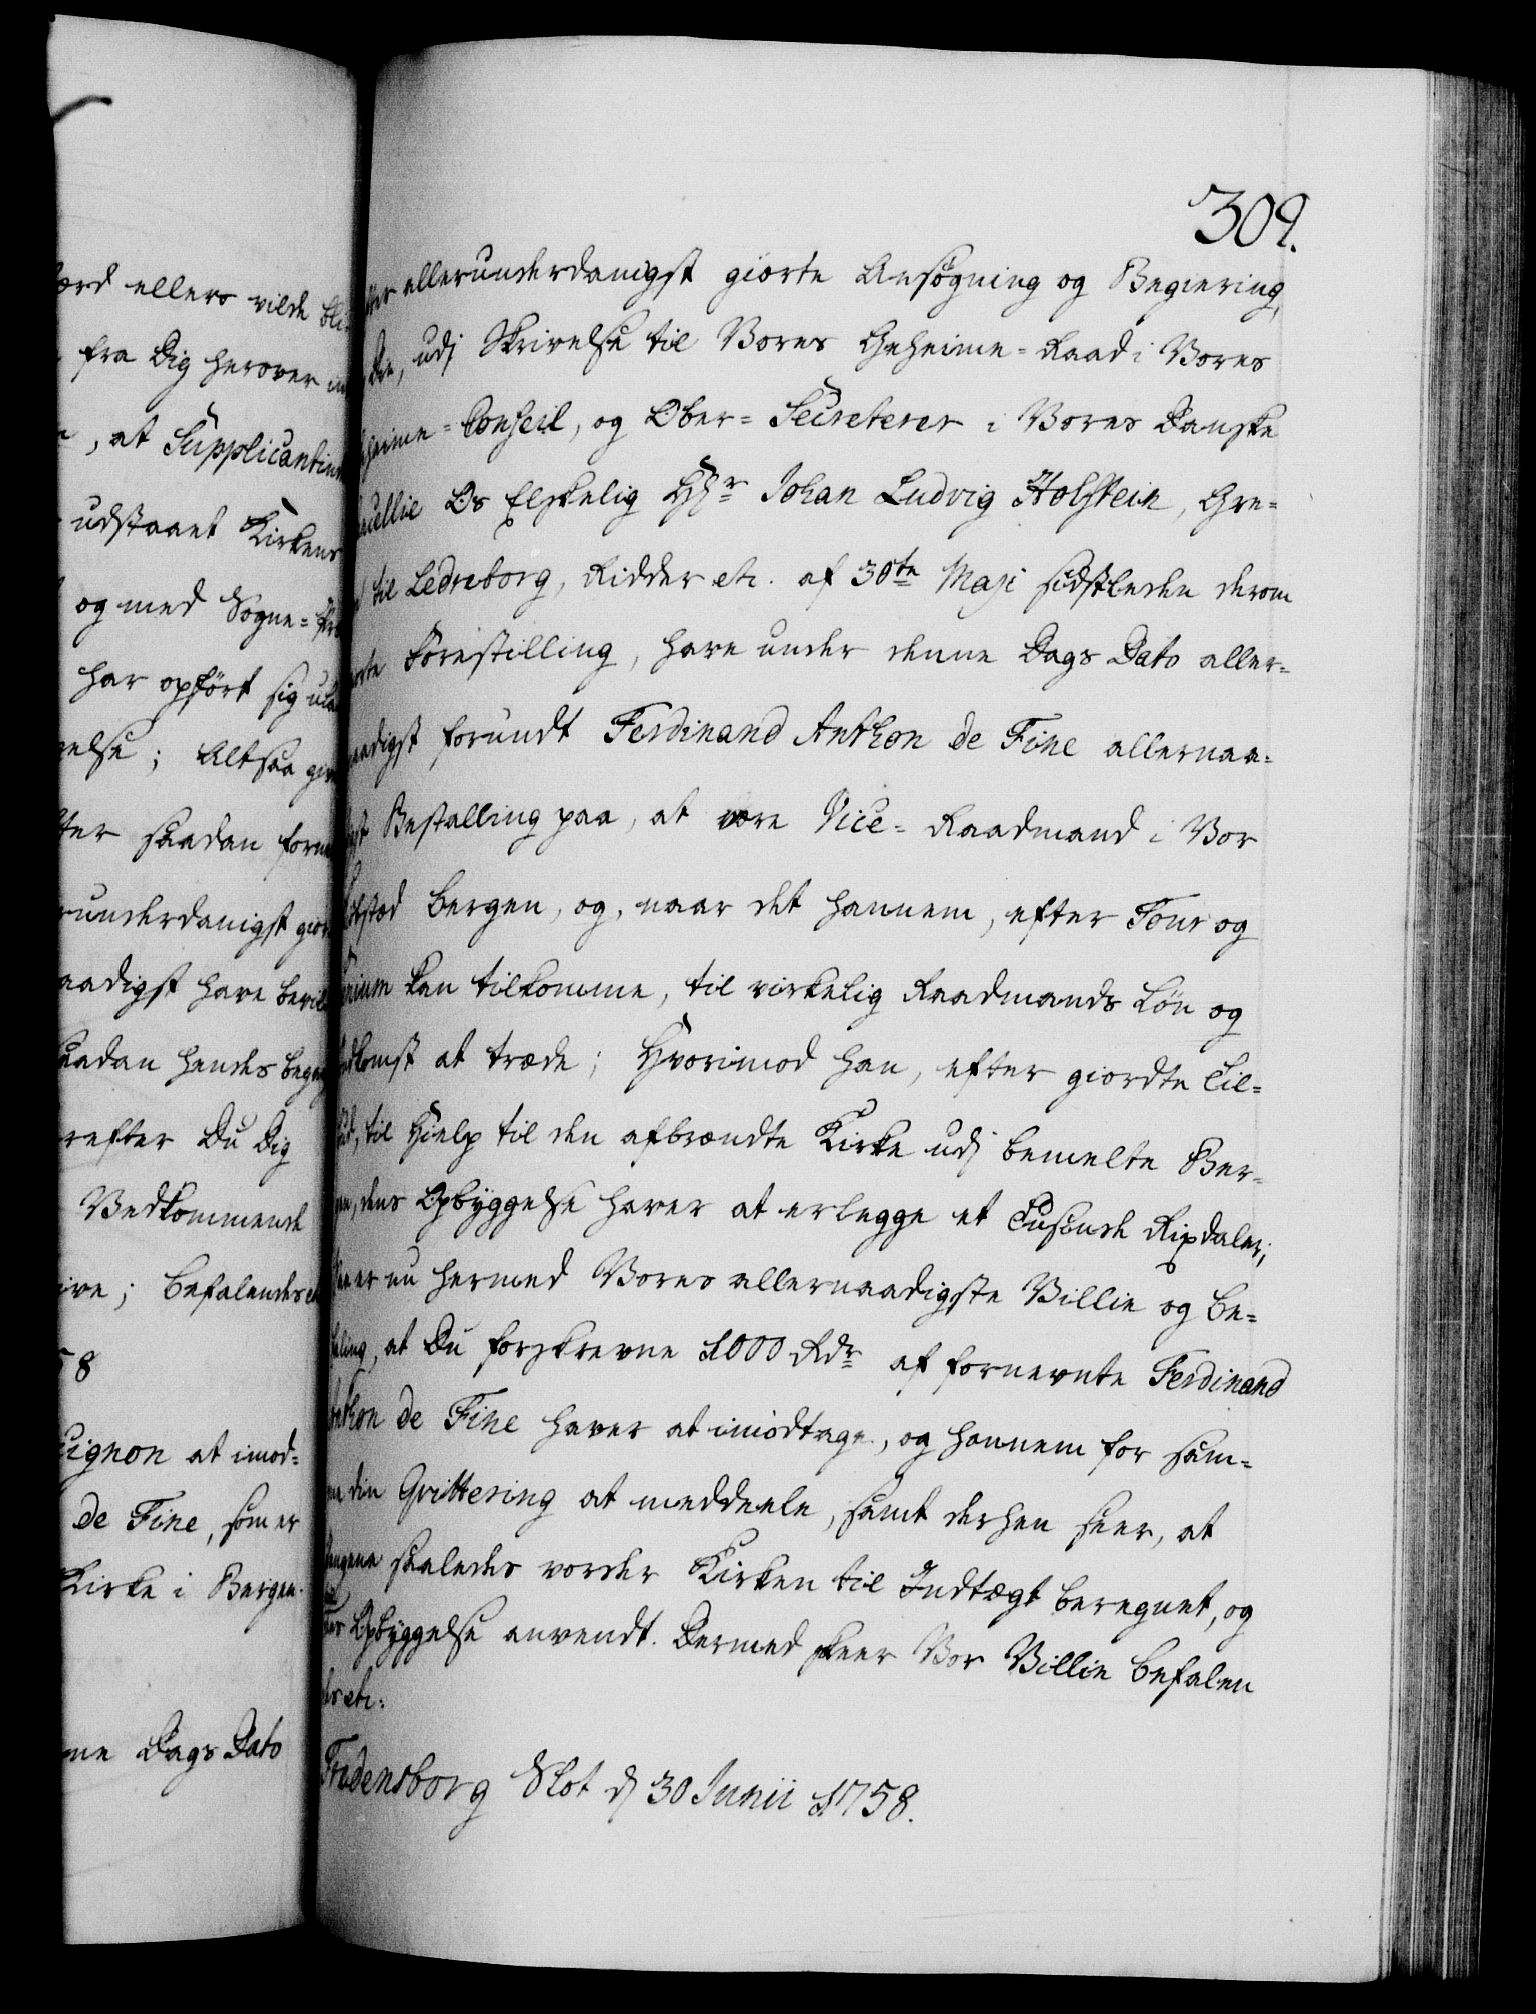 ærd ellers vilde bli-
fra Dig herover
, at Supplicantind
udstaaet Kirkens
og med Sogne-
har opført sig
else; Altsaa
ter saadan
runderdanigst
aadigst have
saadan hendes
refter Du Dig
Vedkommende
ive; Befalendes
58
uignon at imod-
de Fine, som er
Kirke i Bergen.
ne Dags Dato
309.
allerunderdanigst giorte Ansøgning og Begiering,
udj Skrivelse til Vores Geheime-Raad i Vores
heime-Conseil, og Ober-Secreterer i Vores Danske
ellie Os Elskelig Hr Johan Ludvig Holstein, Gre-
til Ledreborg, Ridder etc. af 30te Maji sidstleden derom
Forestilling, have under denne Dags Dato aller-
naadigst forundt Ferdinand Anthon de Fine allernaa-
Bestalling paa, at være Vice-Raadmand i Vor
Kiøbstæd Bergen, og, naar det hannem, efter Tour og
kan tilkomme, til virkelig Raadmands Løn og
Indkomst at træde; Hvorimod han, efter giordte Til-
bud, til Hielp til den afbrændte Kirke udj bemelte Ber-
gen, dens Opbyggelse haver at erlegge et Tusinde Rixdaler;
Saa er nu hermed Vores allernaadigste Villie og Be-
faling, at Du forskrevne 1000 Rdr af fornevnte Ferdinand
Anthon de Fine haver at imodtage, og hannem for sam-
me din Qvittering at meddeele, samt derhen seer, at
Pengene saaledes vorder Kirken til Indtægt beregnet, og
Opbyggelse anvendt. Dermed skeer Vor Villie Befalen
des etc:
Fredensborg Slot d 30 Junii 1758.